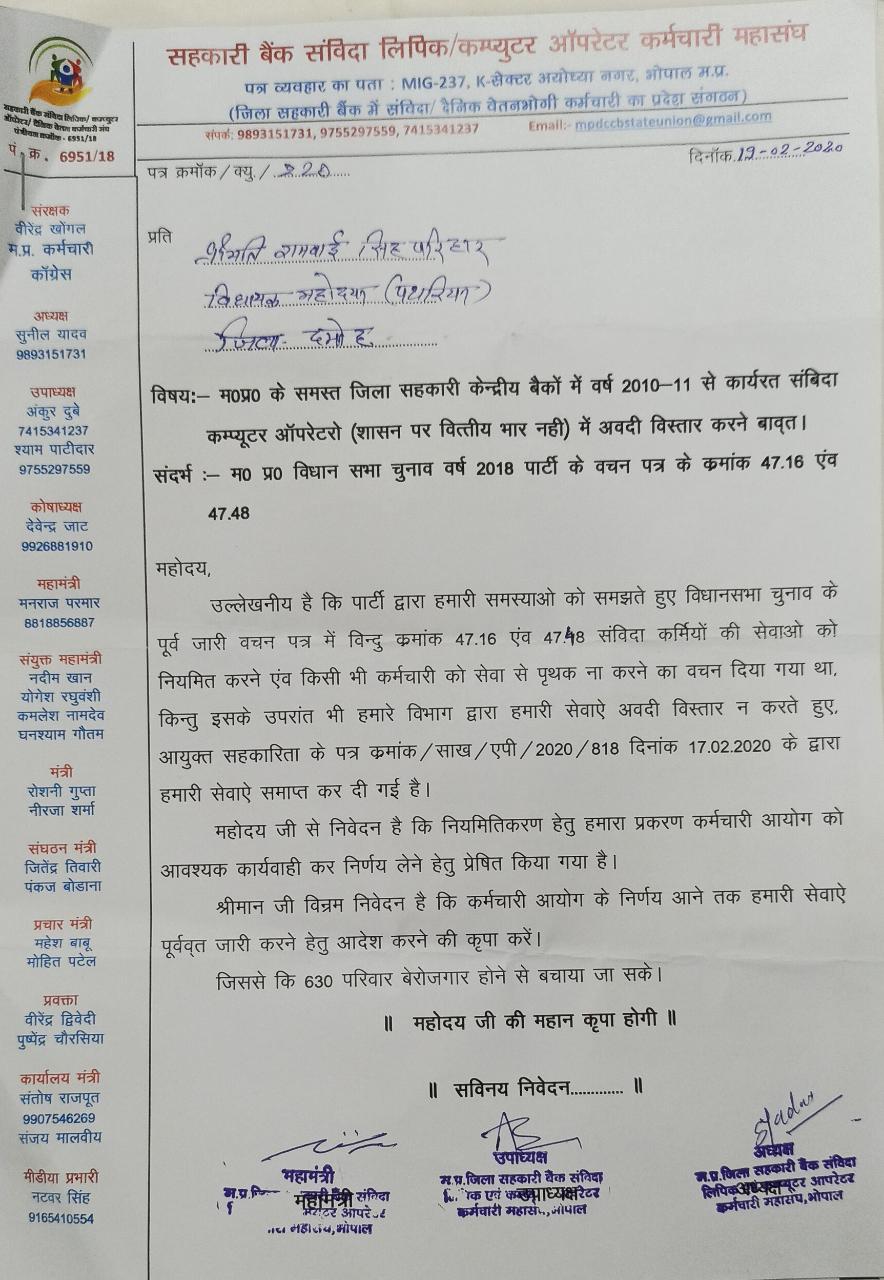 सहकारी बैंक संविदा लिपिक/कम्प्यूटर ऑपरेटर कर्मचारी महासंघ
पत्र व्यवहार का पता : MIG-237, K-सेक्टर अयोध्या नगर, भोपाल म.प्र.
(जिला सहकारी बैंक में संविदा/ दैनिक वेतनभोगी कर्मचारी का प्रदेश संगठन)
संपर्क: 9893151731, 9755297559, 7415341237 Email:- mpdccbstateunion@gmail.com
सहकारी बैंक संविदा लिपिक/ कम्प्यूटर
ऑपरेटर/ दैनिक वेतन कर्मचारी संघ
पंजीयन क्रमांक - 6951/18
पं. क्र. 6951/18
पत्र क्रमॉक/क्यु./ 220
दिनॉक 19-02-2020
संरक्षक
वीरेंद्र खोंगल
म.प्र. कर्मचारी
कॉंग्रेस
अध्यक्ष
सुनील यादव
9893151731
उपाध्यक्ष
अंकुर दुबे
7415341237
श्याम पाटीदार
9755297559
कोषाध्यक्ष
देवेन्द्र जाट
9926881910
महामंत्री
मनराज परमार
8818856887
संयुक्त महामंत्री
नदीम खान
योगेश रघुवंशी
कमलेश नामदेव
घनश्याम गौतम
मंत्री
रोशनी गुप्ता
नीरजा शर्मा
संघठन मंत्री
जितेंद्र तिवारी
पंकज बोडाना
प्रचार मंत्री
महेश बाबू
मोहित पटेल
प्रवक्ता
वीरेंद्र द्विवेदी
पुष्पेंद्र चौरसिया
कार्यालय मंत्री
संतोष राजपूत
9907546269
संजय मालवीय
मीडीया प्रभारी
नटवर सिंह
9165410554
प्रति
श्रीमति रामबाई सिंह परिहार
विधायक महोदया (पथरिया)
जिला- दमोह
विषय:– म0प्र0 के समस्त जिला सहकारी केन्द्रीय बैकों में वर्ष 2010–11 से कार्यरत संबिदा
कम्प्यूटर ऑपरेटरो (शासन पर वित्तीय भार नही) में अवदी विस्तार करने बाव्त।
संदर्भ :– म0 प्र0 विधान सभा चुनाव वर्ष 2018 पार्टी के वचन पत्र के क्रमांक 47.16 एंव
47.48
महोदय,
उल्लेखनीय है कि पार्टी द्वारा हमारी समस्याओ को समझते हुए विधानसभा चुनाव के
पूर्व जारी वचन पत्र में विन्दु क्रमांक 47.16 एंव 47.48 संविदा कर्मियों की सेवाओ को
नियमित करने एंव किसी भी कर्मचारी को सेवा से पृथक ना करने का वचन दिया गया था,
किन्तु इसके उपरांत भी हमारे विभाग द्वारा हमारी सेवाऐ अवदी विस्तार न करते हुए,
आयुक्त सहकारिता के पत्र क्रमांक/साख/एपी/2020/818 दिनांक 17.02.2020 के द्वारा
हमारी सेवाऐ समाप्त कर दी गई है।
महोदय जी से निवेदन है कि नियमितिकरण हेतु हमारा प्रकरण कर्मचारी आयोग को
आवश्यक कार्यवाही कर निर्णय लेने हेतु प्रेषित किया गया है।
श्रीमान जी विन्रम निवेदन है कि कर्मचारी आयोग के निर्णय आने तक हमारी सेवाऐ
पूर्वव्त जारी करने हेतु आदेश करने की कृपा करें।
जिससे कि 630 परिवार बेरोजगार होने से बचाया जा सके।
॥ महोदय जी की महान कृपा होगी ॥
॥ सविनय निवेदन............ ॥
महामंत्री
महामंत्री
संविदा
महासंघ,भोपाल
उपाध्यक्ष
म.प्र.जिला सहकारी बैंक संविदा
उपाध्यक्ष
कर्मचारी महासंघ,भोपाल
Yadav
अध्यक्ष
म.प्र.जिला सहकारी बैंक संविदा
लिपिक कम्प्यूटर आपरेटर
अध्यक्ष
कर्मचारी महासंघ,भोपाल